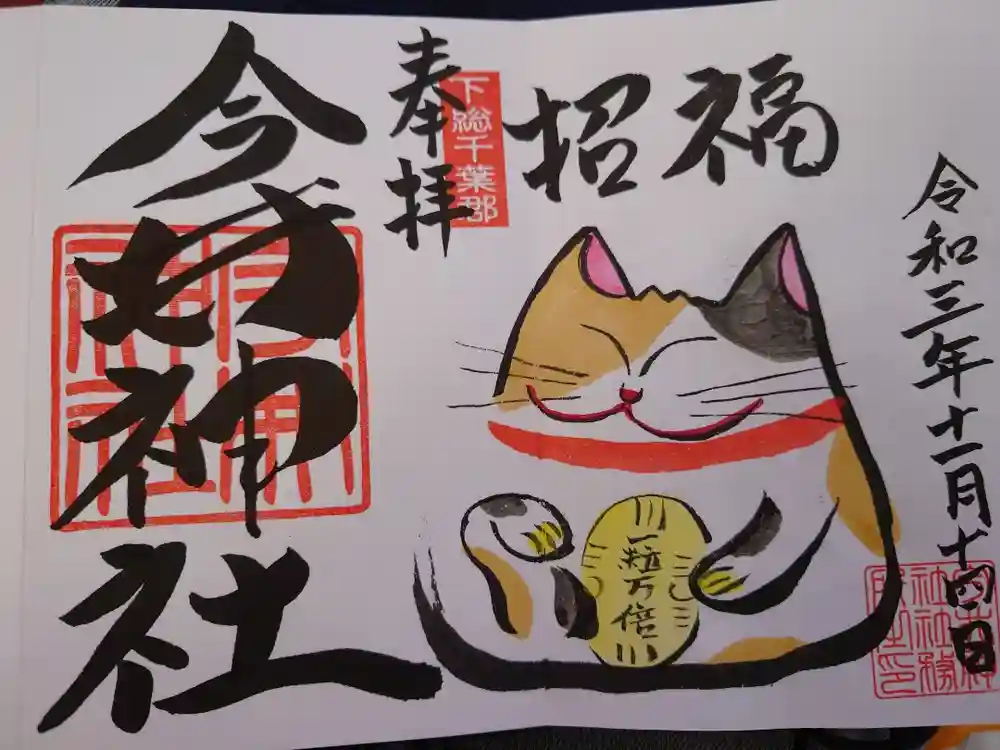 令和三年十一月十四日
招福
一粒万倍
奉拝
下総千葉郡
神社